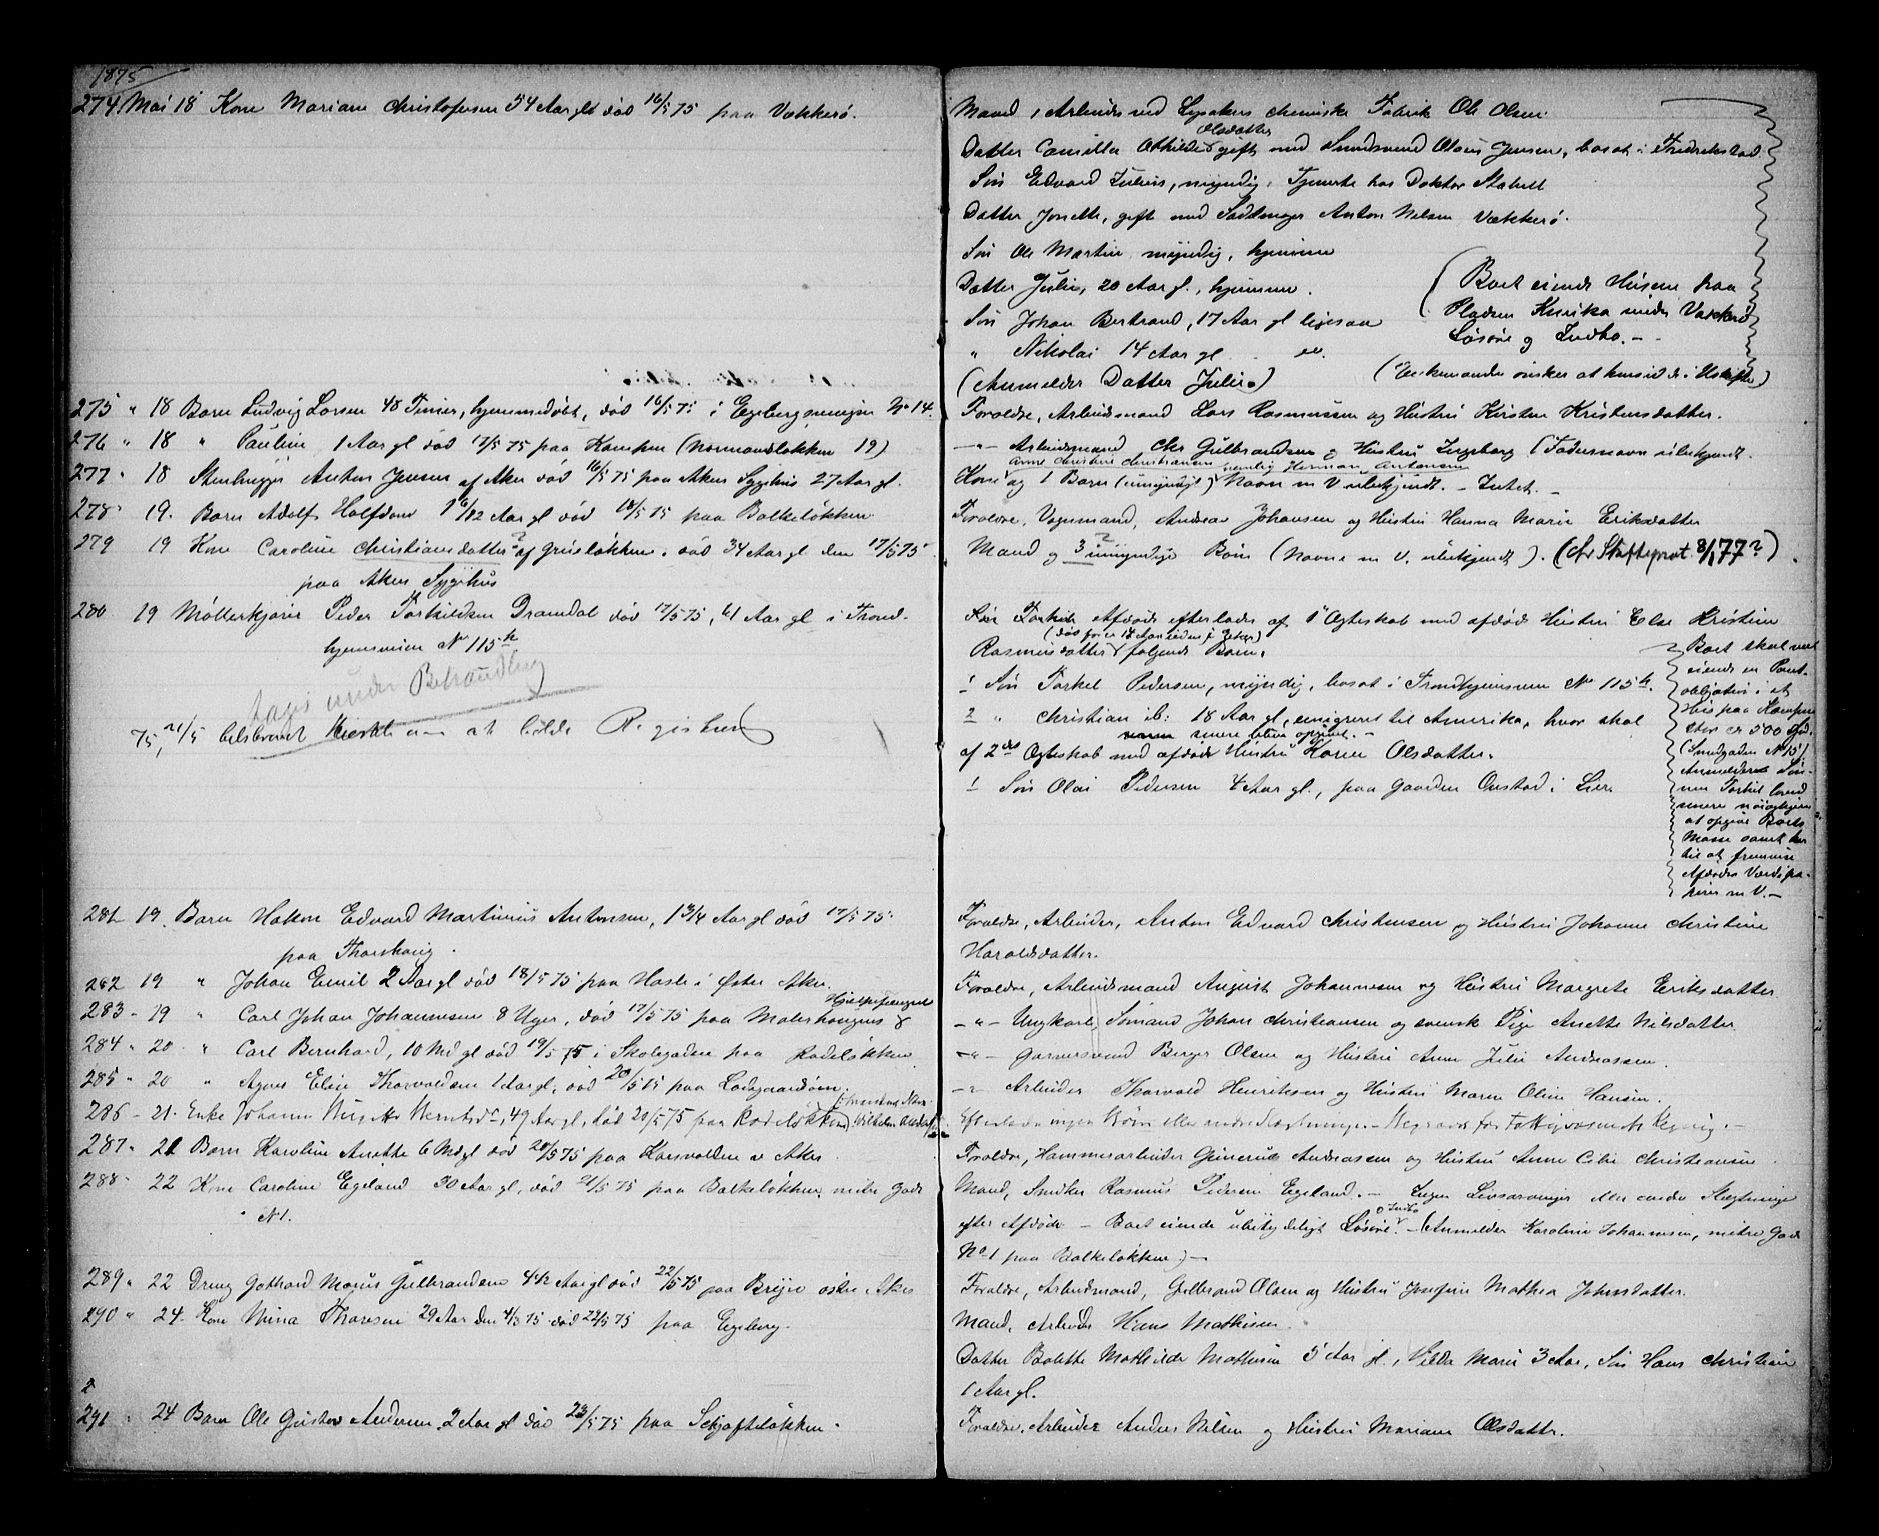 1875
274. Mai 18 Kone Mariane Christofersen 54 Aar gl død 16/5 75 paa Vækkerø.
Mand, Arbeider ved Lysakers chemiske Fabrik Ole Olsen
Olsdatter
Datter Camilla Othilde gift med Svend Olaus Jensen, bosat i Fredrikstad
Søn Edvard Julius, myndig, Tjeneste hos Doktor Stabell
Datter Jonette, gift med Sadelmager Anton Nilsen Vækkerø.
Søn Ole Martin myndig, hjemme
Datter Julie, 20 Aar gl., hjemme.
Søn Johan Bertrand, 17 Aar gl ligesaa
" Nikolai 14 Aar gl
(Anmelder Datter Julie.)
(Boet eiende Husene paa
Pladsen Kurika under Vækkerø
Løsøre og Indbo. -
(Enkemanden ønsker at hensidde i Uskifte)
275 " 18 Barn Ludvig Larsen 48 Timer, hjemmedøbt, død 16/5 75 i Egebergveien No 14.
Foreldre, Arbeidsmand Lars Rasmussen og Hustru Kirsten Kristensdatter.
276 " 18 " Pauline 1 Aar gl død 17/5 75 paa Kampen (Normandsløkken 19)
-"- Arbeidsmand Chr Gulbrandsen og Hustru Ingeborg (Fadersnavn ubekjendt.
277 " 18 Stenhugger Anton Jensen af Aker død 16/5 75 paa Akers Sygehus 27 Aar gl.
Anne Christine Christiansen nemlig Herman Antonsen
Kone og 1 Barn (umyndigt) Navn m V ubekjendt. - Intet. -
278 " 19. Barn Adolf Halfdan 1 6/12 Aar gl død 18/5 75 paa Balkeløkken
Foreldre, Vognmand, Andreas Johansen og Hustru Hanna Marie Eriksdatter
279 19 Kone Caroline Christiansdatter ? af Grüsløkken. død 34 Aar gl den 17/5 75
paa Akers Sygehus
Mand og 3 ? umyndige Børn (Navne m V. ubekjendt). (cfr Skifteprot 8/177?)
280 19 Møllerkjører Peder Torkildsen Dramdal død 17/5 75, 41 Aar gl i Trond-
hjemsveien No 115 b
tages under Behandling
75, 21/5 tilskrevet at holde Registrering
Afdøde efterlader af 1e Ægteskab med afdød Hustru Else Kristine
Rasmusdatter følgende Børn.
1 Søn Torkel Pedersen, myndig, bosat i Trondhjemsveien No 115 b.
2 " Christian ib: 18 Aar gl, emigreret til Amerika, hvor skal
senere blive opgivet. -
af 2det Ægteskab med afdøde Hustru Karen Olsdatter.
1 Søn Olai Pedersen 4 Aar gl., paa Gaarden Onstad i Lier
Boet skal være
eiende en Pant-
obligation i et
Hus paa Kampen
stor er 500 Spd.
(Smedgaden No 15)
Anmelderen Søn-
nen Torkil lovede
senere nøiagtigere
at opgive Boets
Masse samt her
til at fremvise
Afdødes Værdipa-
pirer m V. -
281 19. Barn Hakon Edvard Martinius Antonsen, 1 3/4 Aar gl død 17/5 75
paa Thorshaug.
Foreldre, Arbeider, Anton Edvard Christensen og Hustru Johanne Christine
Haraldsdatter.
282 19 " Johan Emil 2 Aar gl død 18/5 75 paa Hasle i Østre Aker.
Foreldre, Arbeidsmand August Johannesen og Hustru Margrete Eriksdatter
283 - 19 " Carl Johan Johannesen 8 Uger, død 17/5 75 paa Malerhaugens
-"- Ungkarl Sømand Johan Christiansen og svensk Pige Anette Nilsdatter
284 " 20 " Carl Bernhard, 10 Md gl død 19/5 75 i Skolegaden paa Rodeløkken
-"- Garversvend Berger Olsen og Hustru Anne Julie Andreassen.
285 " 20 " Agnes Elise Thorvaldsen 1 Aar gl, død 20/5 75 paa Ladegaardsøen.
-"- Arbeider Thorvald Henriksen og Hustru Maren Oline Hansen.
286 - 21. Enke Johanne Berntsd., 49 Aar gl, død 20/5 75 paa Rodeløkken
Efterlader ingen Børn eller andre Slægtninge. - Begraves for Fattigvæsenets Regning. -
287 " 21 Barn Karoline Anette 6 Md gl død 20/5 75 paa Korsvolden v Aker
Foreldre, Hammerarbeider Gunerius Andreassen og Hustru Anne Cilie Christiansen
288 - 22 Kone Caroline Egeland 30 Aar gl, død 21/5 75 paa Balkeløkken, midtre Gade
No 1.
Mand, Snedker Rasmus Pedersen Egeland. - Ingen Livsarvinger eller andre Slægtninge
o Indbo
efter Afdøde - Boet eiende ubetydeligt Løsøre. - (Anmelder Karoline Johannesen, midtre Gade
No 1 paa Balkeløkken) -
289 " 22 Dreng Gothard Marius Gulbrandsen 4 1/2 Aar gl død 22/5 75 paa Bryn østre Aker
Foreldre, Arbeidsmand, Gulbrand Olsen og Hustru Josefine Mathea Johnsdatter.
290 " 24. Kone Mina Thoresen 29 Aar den 4/3 75 død 22/5 75 paa Egeberg.
Mand, Arbeider Hans Mathisen.
Datter Bolette Mathilde Mathisen 5 Aar gl., Hilda Marie 3 Aar, Søn Hans Christian
1 Aar gl.
291 " 24 Barn Ole Gustav Andersen 2 Aar gl død 23/5 75 paa Schjøfteløkken.
Foreldre, Arbeider Anders Nilsen og Hustru Mariane Olsdatter.